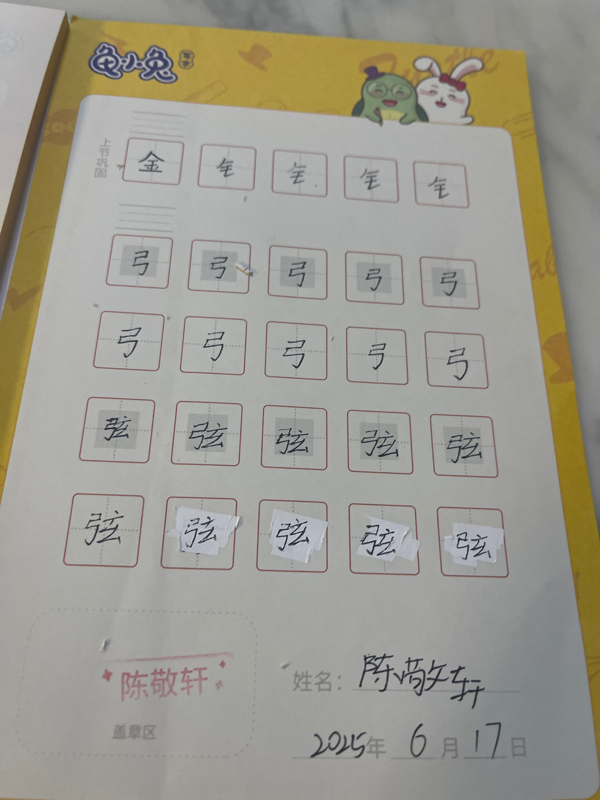 龟小兔
写字
上节巩固
金 钅 钅 钅 钅
弓 弓 弓 弓 弓
弓 弓 弓 弓 弓
弦 弦 弦 弦 弦
弦 弦 弦 弦 弦
陈敬轩
盖章区
姓名：陈敬轩
2025年6月17日